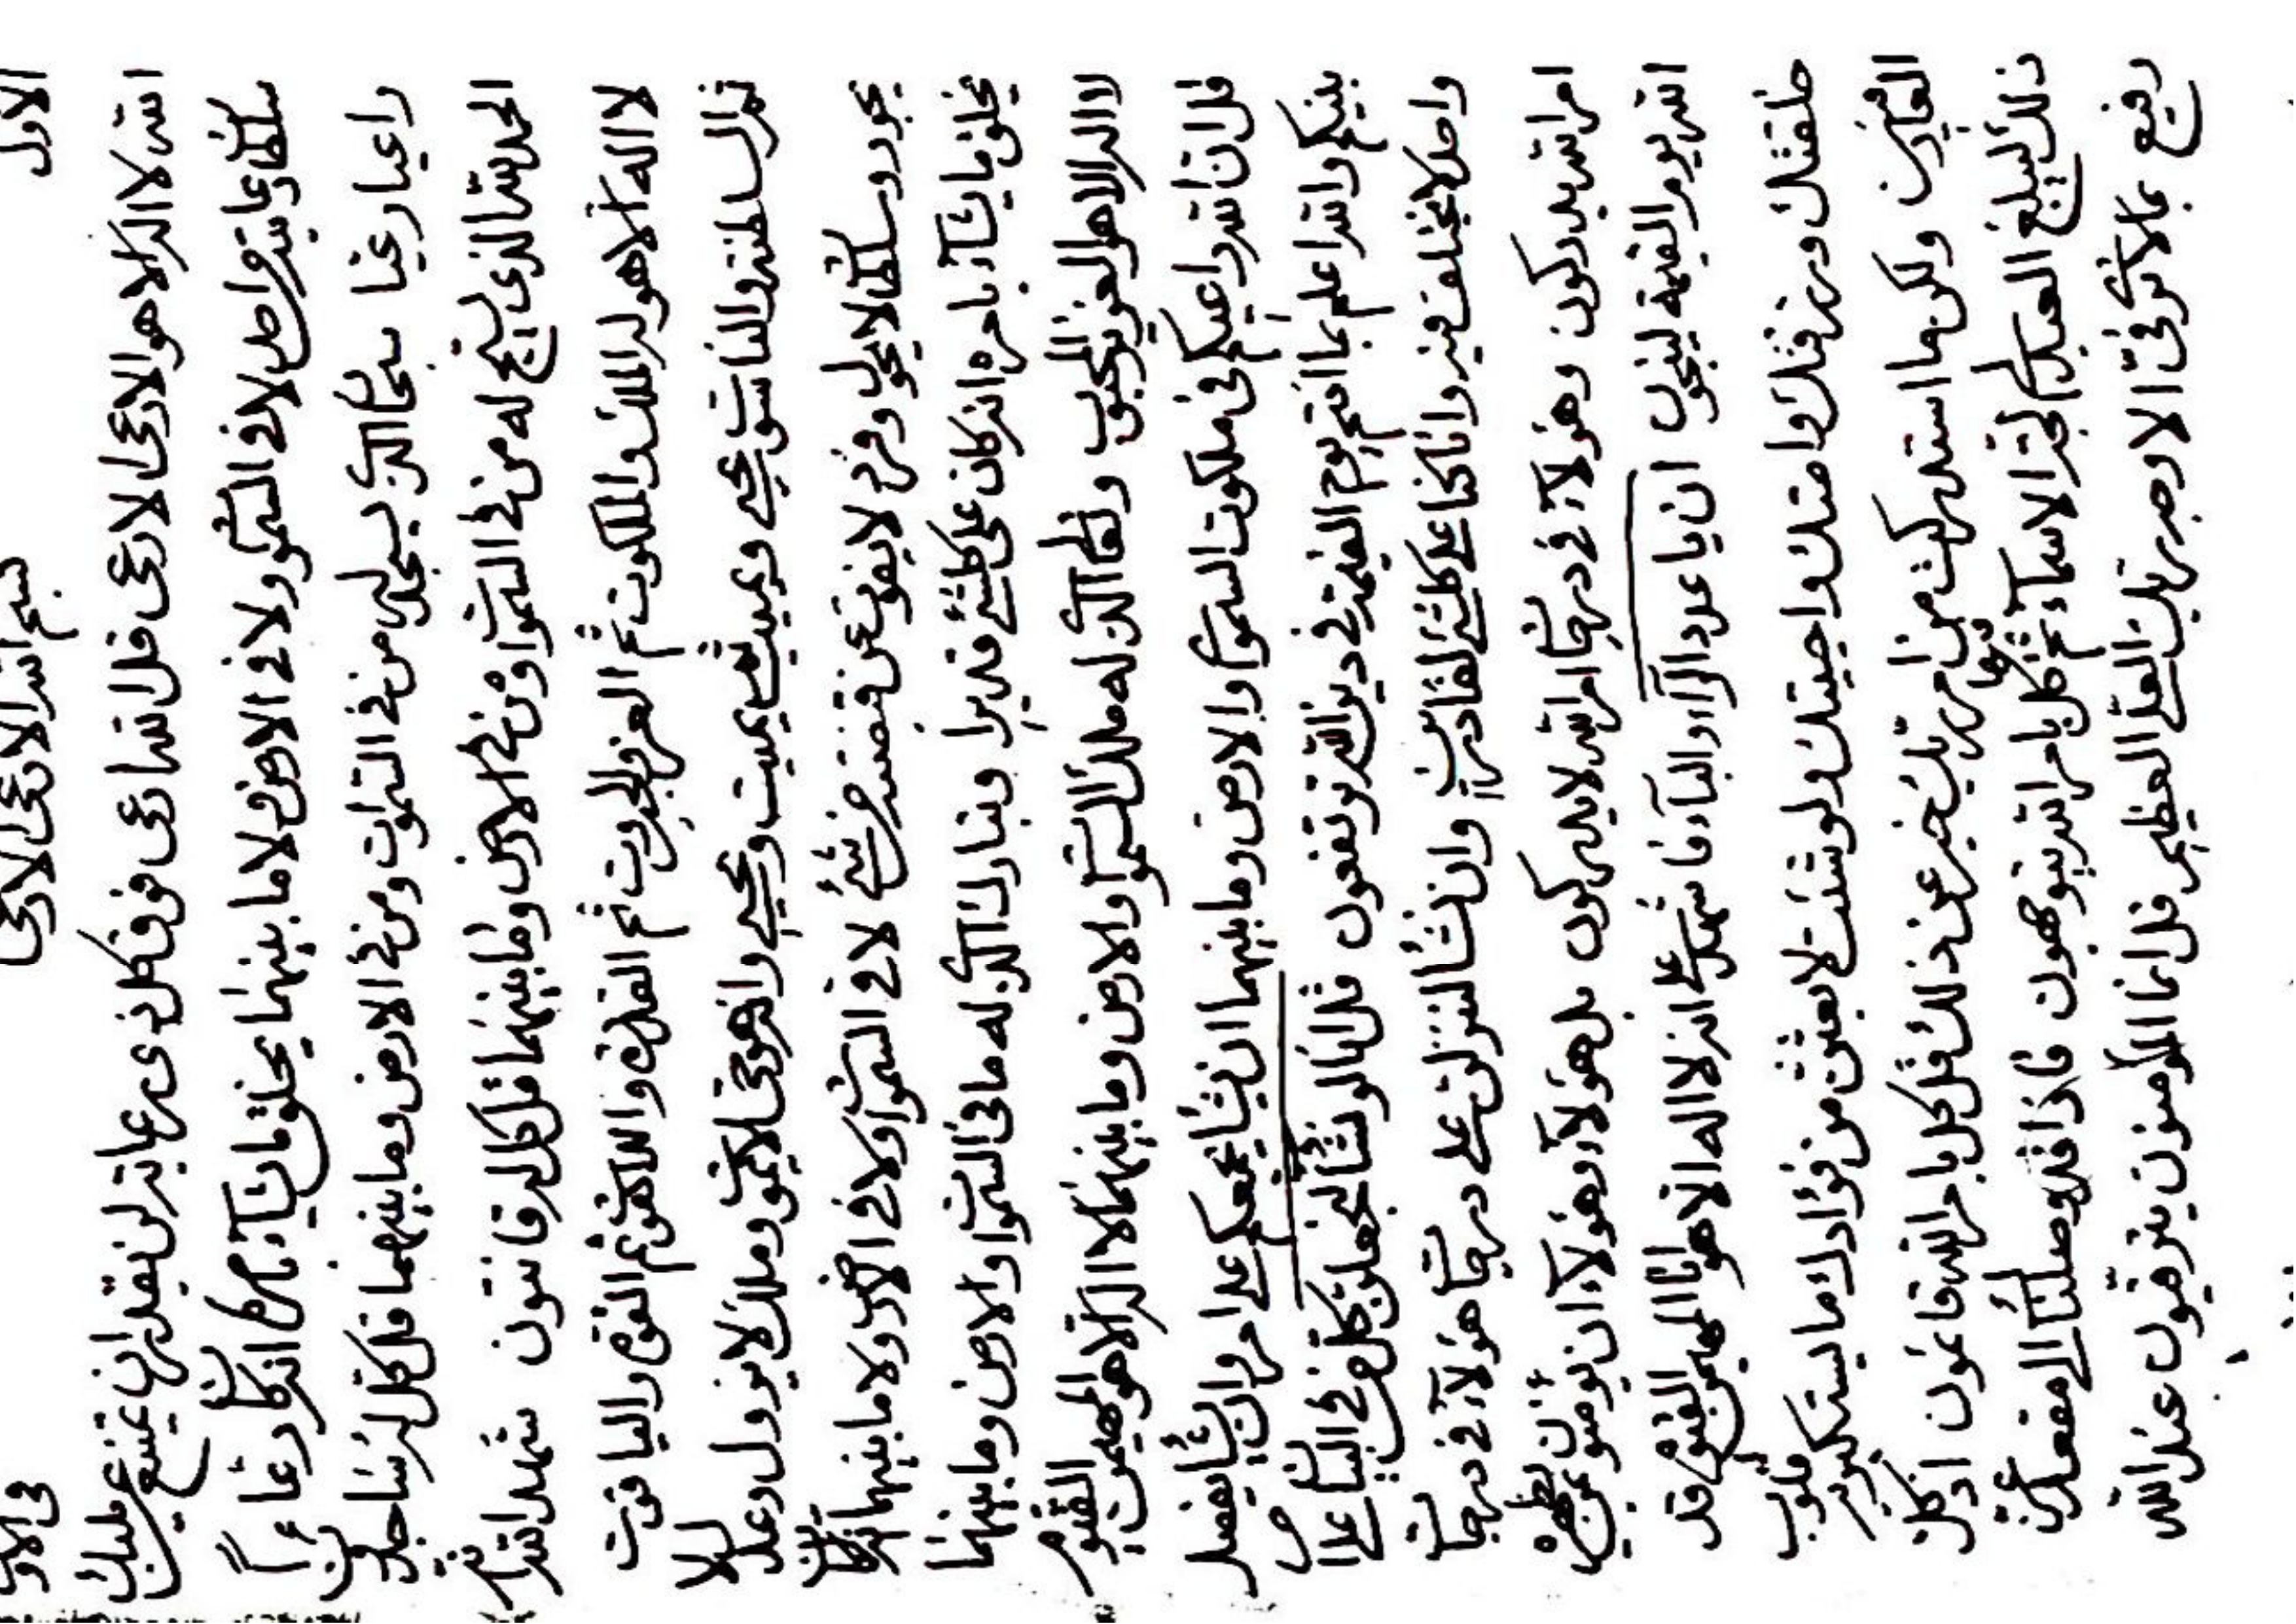 الاول بسم الله الادعى الادعى فى الاو
الله لا اله الا هو الادعى الادعى قل الله ادعى فوق كل ذى دعاء لن يقدر ان يمتنع عن مليك
سلطان دعائه من احد لا فى السموات ولا فى الارض ولا ما بينهما يخلق ما يشاء بامره انه كان دعاءا
داعيا دعيا سبحان الذى يسجد له من فى السموات ومن فى الارض وما بينهما قل كل له ساجدون
الحمد لله الذى يسبح له من فى السموات ومن فى الارض وما بينهما قل كل له قانتون شهد الله انه
لا اله الا هو له الملك والملكوت ثم العز والجبروت ثم القدرة واللاهوت ثم القوة والياقوت
ثم السلطنة والناسوت يحيى ويميت ثم يميت ويحيى وانه هو حى لا يموت وملك لا يزول وعدل لا
يجور وسلطان لا يحول وفرد لا يفوت عن قبضته من شئ لا فى السموات ولا فى الارض ولا ما بينهما
يخلق ما يشاء بامره انه كان على كلشئ قديرا وتبارك الذى له ما فى السموات والارض وما بينهما
لا اله الا هو العزيز المحبوب وتعالى الذى له ملك السموات والارض وما بينهما لا اله الا هو المهيمن القيوم
قل ان الله داعيكم فى ملكوت السموات والارض وما بينهما ان يشأ يجمعكم على امر وان يشأ يفصل
بينكم والله اعلم بما انتم يوم القيمة فى دين الله ترتفعون قل انا لو نشأ لنجعلن كل من فى البيان على امر
واحد لا يختلف فيه وانا كنا على كلشئ لقادرين وان نشأ لننزلن على درجات هؤلاء فى درجات
امر الله يدركون وهؤلاء فى درجات امر الله لا يدركون بل هؤلاء وهؤلاء ان يؤمنون بمن يظهره
الله يوم القيمة لينجون ان يا عدد الراء والباء فاشهد على انه لا اله الا هو انا المهيمن القيوم قد
خلقتك ورزقتك وامتك واحييتك ولو شئت لابعثن من فؤادك ما يستكبر به قلوب
العارفين ولكن ما استدركت من امر ربك خير عن ذلك قل كل بامر الله قائمون اذ كل
ذلك ليبلغ العبد الاسماء ثم كل بامر الله يتوجهون فاذا قد وصلنا الى مقعد عز
رفيع بما لا الا ربك العلى العظيم قل انما المؤمنون يترقبون عند الله